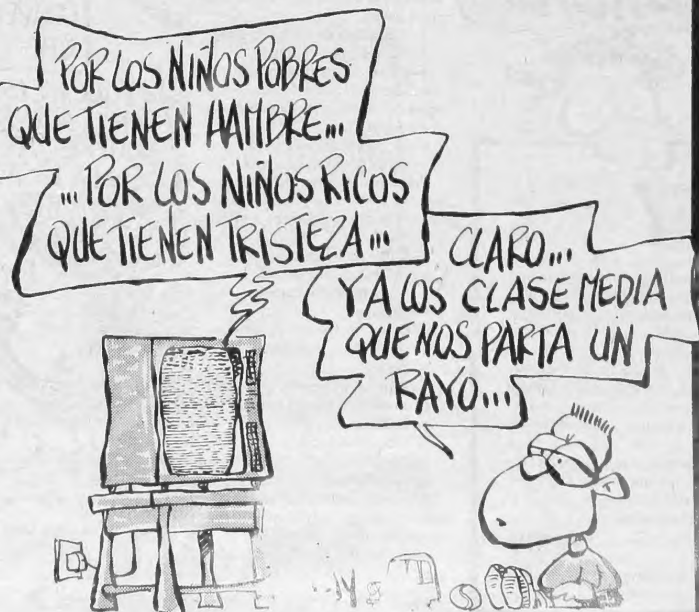 POR LOS NIÑOS POBRES
QUE TIENEN HAMBRE...
...POR LOS NIÑOS RICOS
QUE TIENEN TRISTEZA...
CLARO...
Y A LOS CLASE MEDIA
QUE NOS PARTA UN
RAYO...